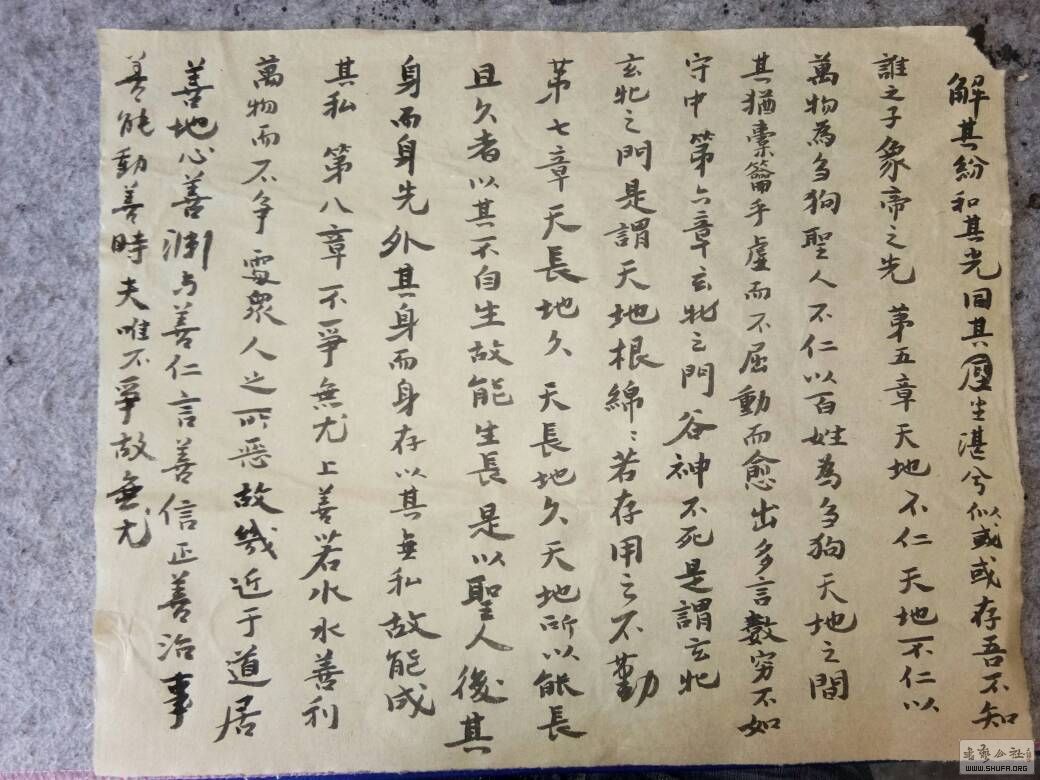 解其紛和其光同其塵尘湛兮似或或存吾不知
誰之子象帝之先 第五章天地不仁天地不仁以
萬物為芻狗聖人不仁以百姓為芻狗天地之間
其猶橐籥乎虛而不屈動而愈出多言數穷不如
守中第六章玄牝之門谷神不死是謂玄牝
玄牝之門是謂天地根綿〻若存用之不勤
第七章天長地久天長地久天地所以能長
且久者以其不自生故能生長是以聖人後其
身而身先外其身而身存以其無私故能成
其私 第八章不爭無尤上善若水水善利
萬物而不争處衆人之所恶故幾近于道居
善地心善渊与善仁言善信正善治事
善能動善時夫唯不爭故無尤
書藝公社
WWW.SHUFA.ORG